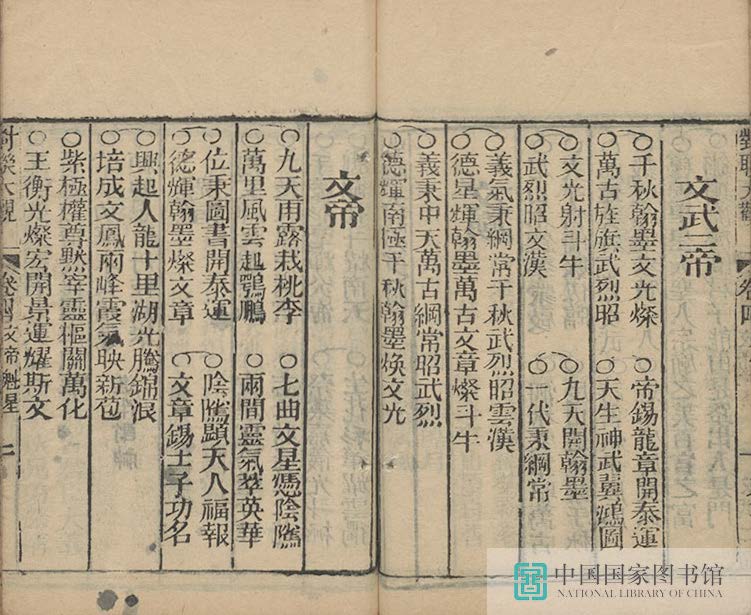 文武二帝
千秋翰墨文光燦 帝錫龍章開泰運
萬古旌旗武烈昭 天生神武冀鴻圖
文光射斗牛 九天開翰墨
武烈昭文漢 一代秉綱常
義氣秉綱常千秋武烈昭雲漢
德星輝翰墨萬古文章燦斗牛
義秉中天萬古綱常昭武烈
德輝南極千秋翰墨煥文光
文帝
九天雨露栽桃李 七曲文星憑陰隲
萬里風雲起鶚鵬 兩間靈氣翠英華
位秉圖書開泰運 陰隲顯天人福報
德輝翰墨燦文章 文章錫士子功名
興起人龍十里湖光騰錦浪
培成文鳳兩峰霞氣映新苞
紫極權尊默宰靈樞關萬化
王衡光燦宏開景運耀斯文
對聯大觀 卷四 文帝 魁星
中国国家图书馆
NATIONAL LIBRARY OF CHINA